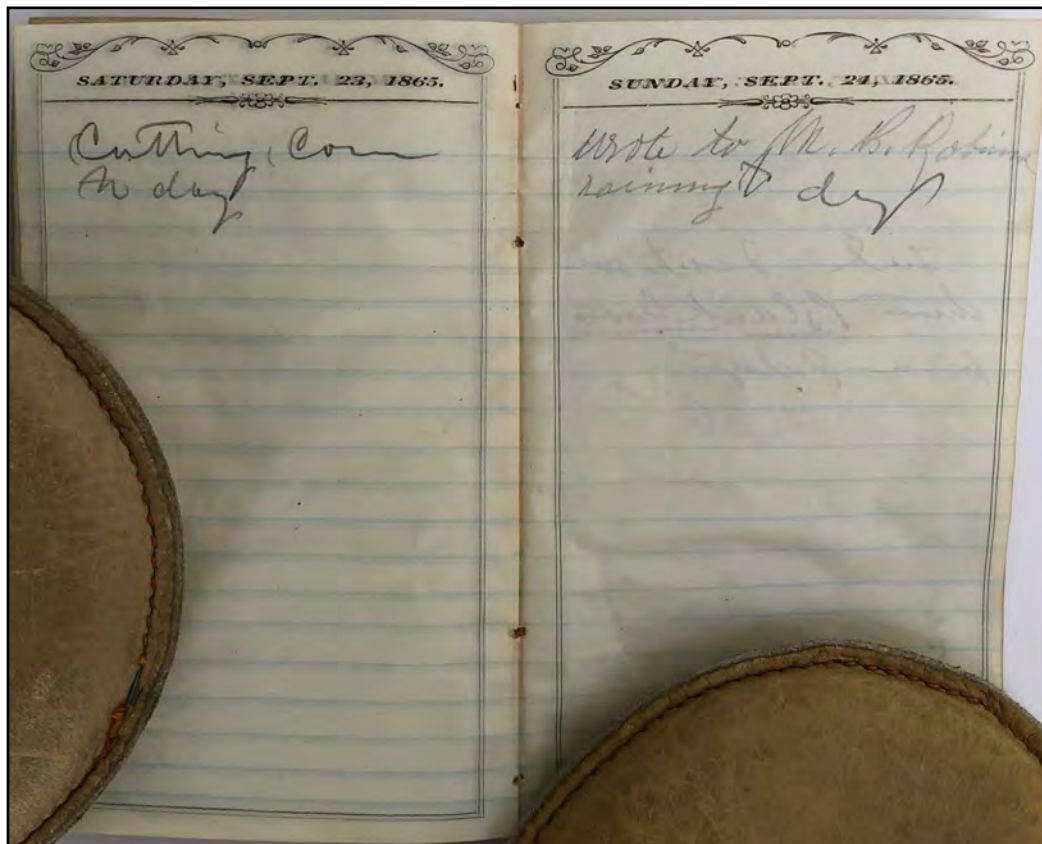 SATURDAY, SEPT. 23, 1865.
Cutting, Corn
to day
SUNDAY, SEPT. 24, 1865.
wrote to M. B. Robinson
raining day